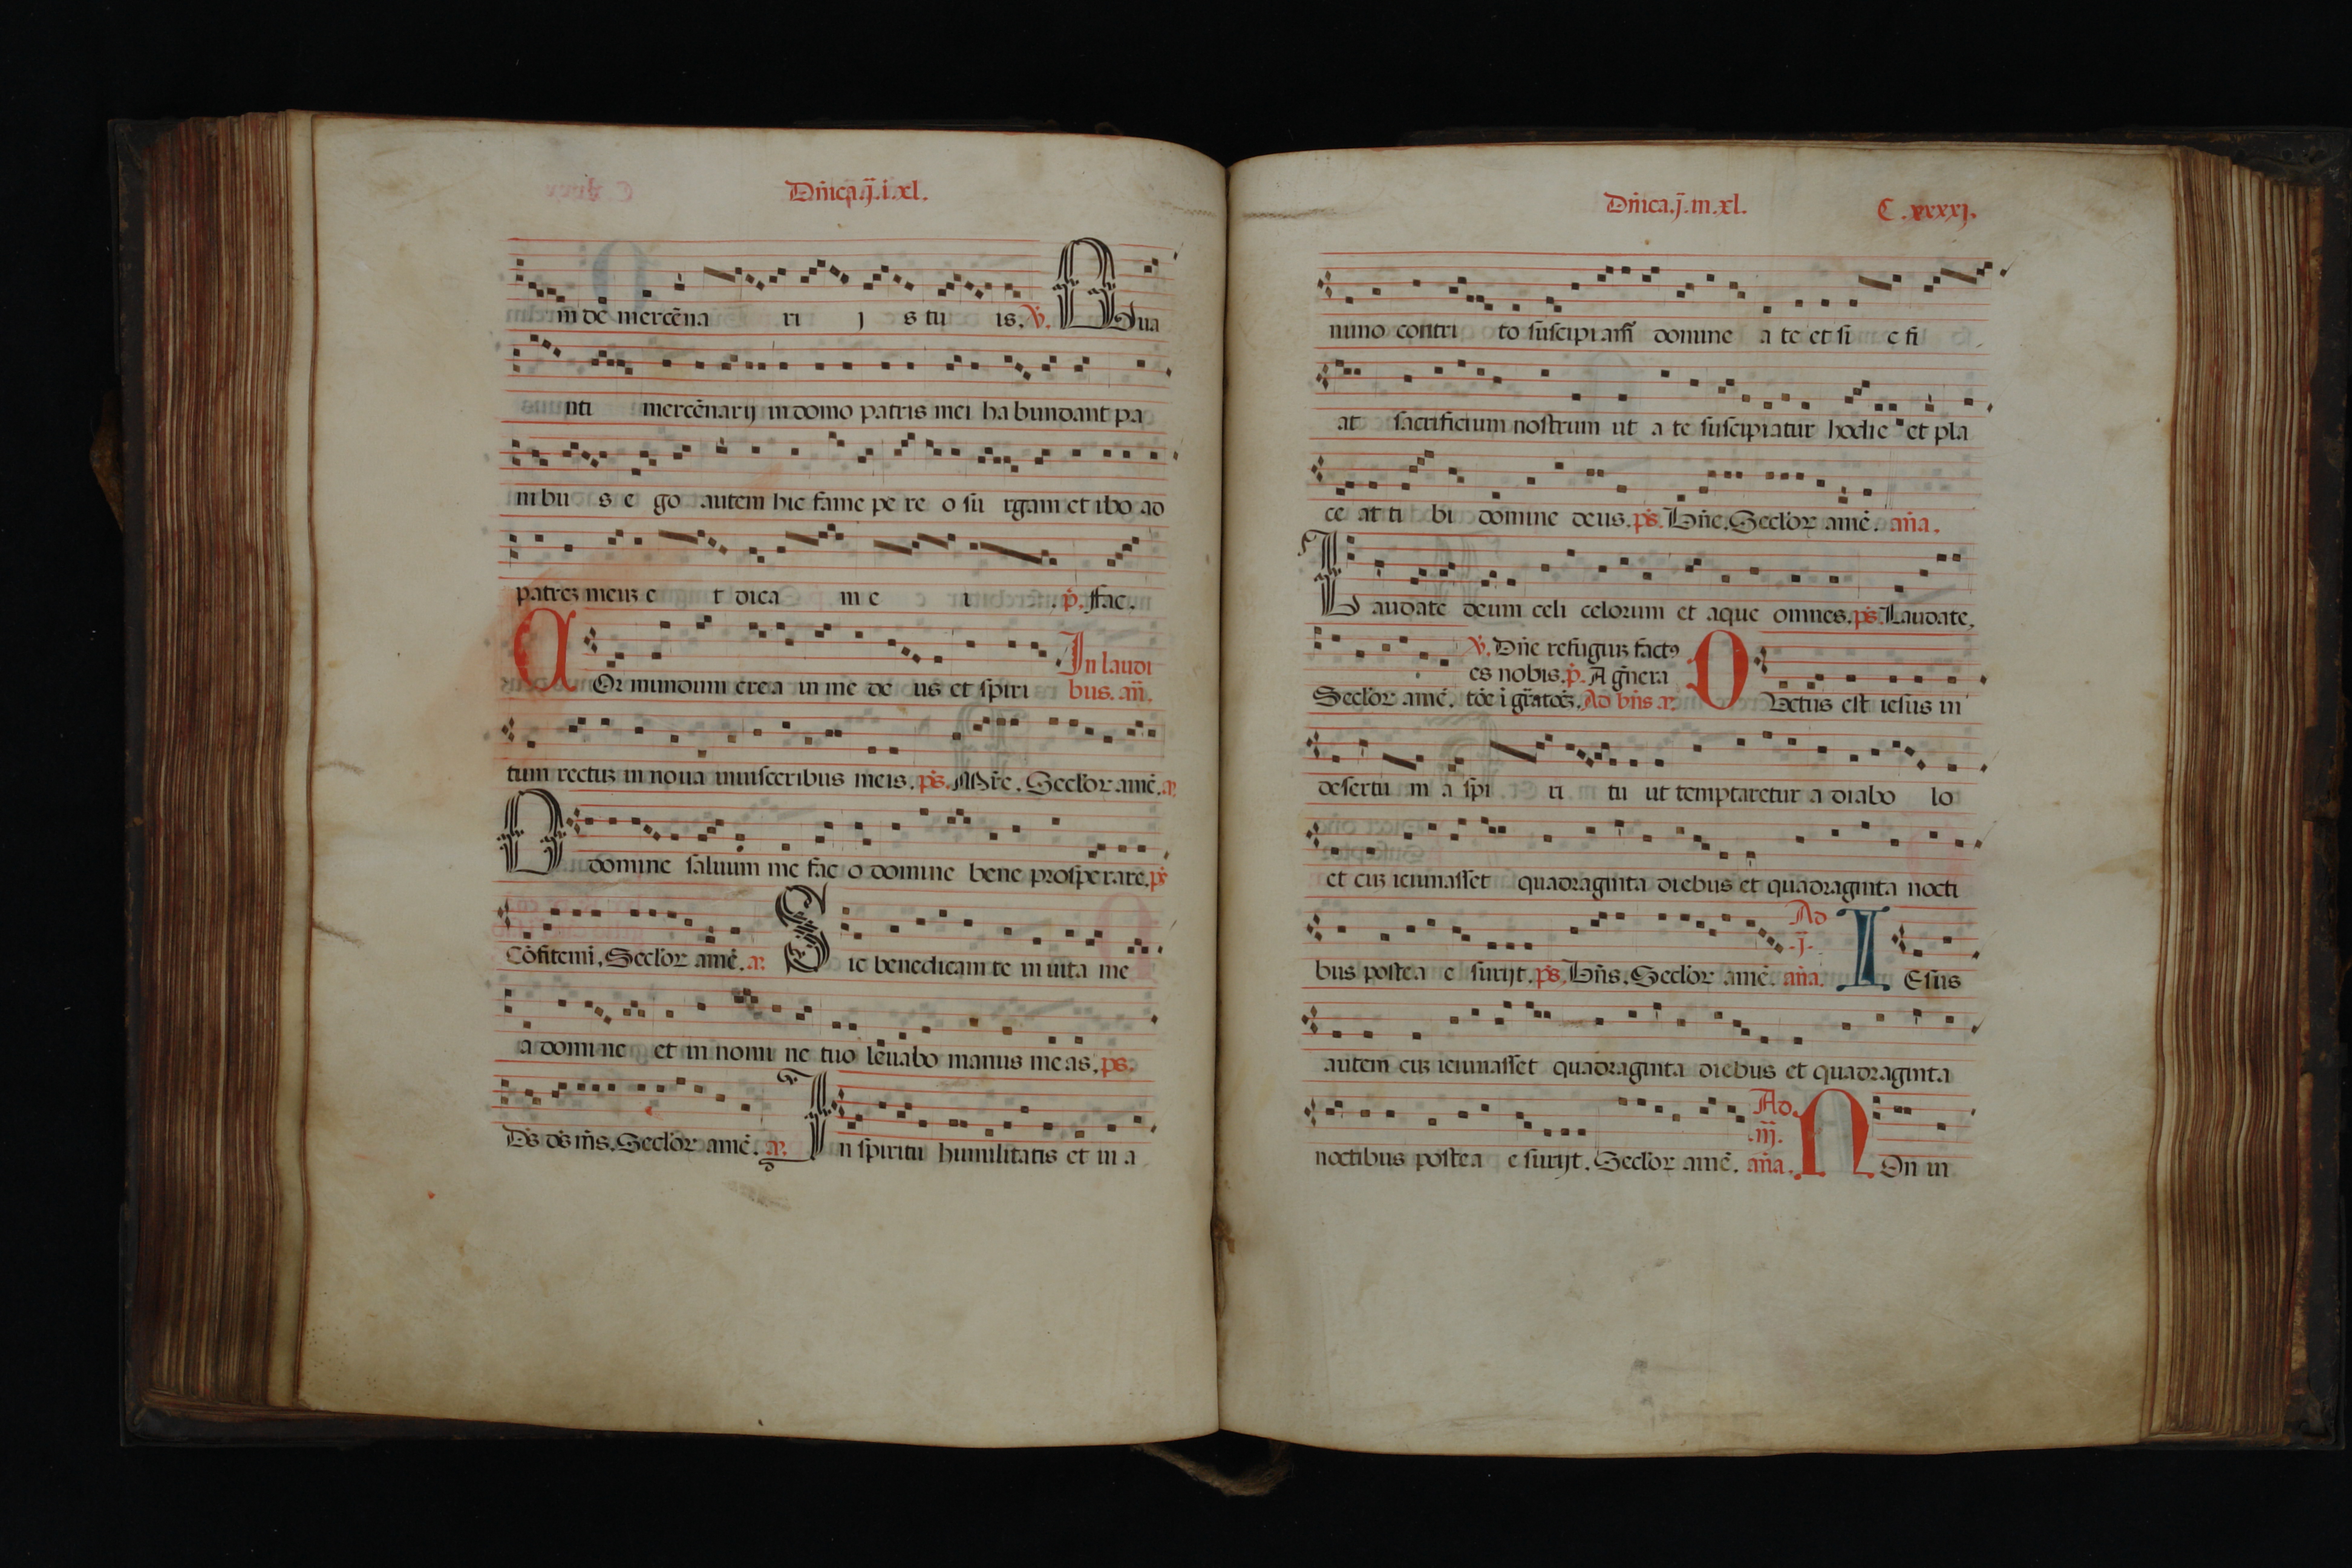 Dñica.ij.i.xl.
m de mercēna ri j s tu is. v. Qua
nti mercēnarij in domo patris mei ha bundant pa
ni bu s e go autem hic fame pe re o su rgam et ibo ad
patreʒ meuʒ e t dica m e i . p. ffac.
COr mundum crea in me de us et spiri In laudi
bus. añ.
tum rectuʒ in noua inuisceribus meis. ps. Mire. Seclor amē. a.
O domine saluum me fac o domine bene prosperare. ps
Cōfitemi. Seclor amē. a. Sic benedicam te in uita me
a domine et in nomi ne tuo leuabo manus meas. ps.
Ds ds ms. Seclor amē. a. In spiritu humilitatis et in a
Dñica.j.in.xl. C.xxxxj.
nimo contri to suscipiamſ domine a te et si c fi
at sacrificium nostrum ut a te suscipiatur hodie et pla
ce at ti bi domine deus. ps. Bñe. Seclor amē. aña.
Laudate deum celi celorum et aque omnes. ps. Laudate.
v. Dñe refugiuʒ factꝯ
es nobis. p. A gñera
Seclor amē. tōe i gratōʒ. Ad bñs a. DUctus est iesus in
desertu m a spi ri tu ut temptaretur a diabo lo
et cuʒ ieiunasset quadraginta diebus et quadraginta nocti
bus postea e surijt. ps. Bñs. Seclor amē. Ad .j. aña. IEsus
autem cuʒ ieiunasset quadraginta diebus et quadraginta
noctibus postea e surijt. Seclor amē. Ad .iij. aña. NOn in